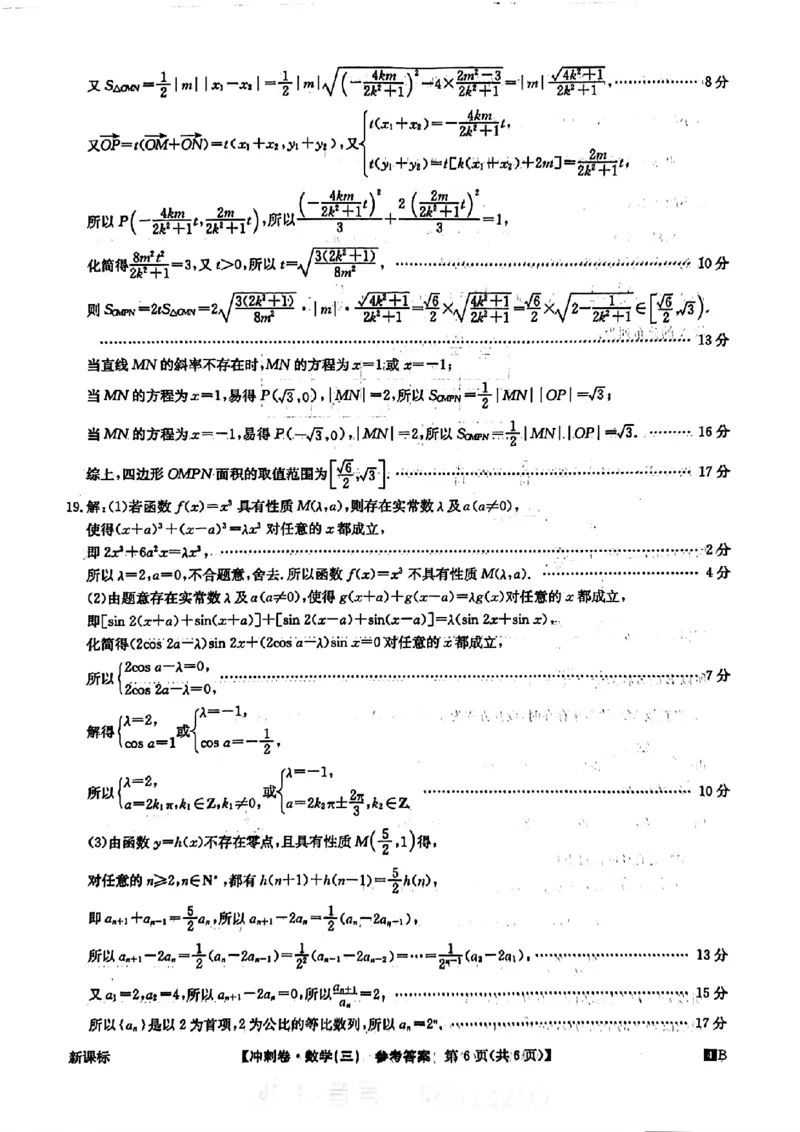 又 S△OMN=1/2|m||x₁-x₂|=1/2|m|√((-4km/(2k²+1))²-4×(2m²-3)/(2k²+1))=|m|√(4k²+1)/(2k²+1),………………8分
又OP→=t(OM→+ON→)=t(x₁+x₂,y₁+y₂),又{t(x₁+x₂)=-4km/(2k²+1)t, t(y₁+y₂)=t[k(x₁+x₂)+2m]=2m/(2k²+1)t,
所以 P(-4km/(2k²+1)t,2m/(2k²+1)t),所以(-4km/(2k²+1)t)²/3+2(2m/(2k²+1)t)²/3=1,
化简得8m²t²/(2k²+1)=3,又 t>0,所以 t=√(3(2k²+1)/8m²),………………10分
则 S_OMPN=2tS△OMN=2√(3(2k²+1)/8m²)·|m|·√(4k²+1)/(2k²+1)=√6/2×√((4k²+1)/(2k²+1))=√6/2×√(2-1/(2k²+1))∈[√6/2,√3).
………………13分
当直线 MN 的斜率不存在时,MN 的方程为 x=1 或 x=-1;
当 MN 的方程为 x=1,易得 P(√3,0),|MN|=2,所以 S_OMPN=1/2|MN||OP|=√3;
当 MN 的方程为 x=-1,易得 P(-√3,0),|MN|=2,所以 S_OMPN=1/2|MN|.|OP|=√3.………16分
综上,四边形 OMPN 面积的取值范围为[√6/2,√3].………………17分
19.解:(1)若函数 f(x)=x³ 具有性质 M(λ,a),则存在实常数 λ 及 a(a≠0),
使得(x+a)³+(x-a)³=λx³ 对任意的 x 都成立,
即 2x³+6a²x=λx³,………………2分
所以 λ=2,a=0,不合题意,舍去.所以函数 f(x)=x³ 不具有性质 M(λ,a).………………4分
(2)由题意存在实常数 λ 及 a(a≠0),使得 g(x+a)+g(x-a)=λg(x)对任意的 x 都成立,
即[sin 2(x+a)+sin(x+a)]+[sin 2(x-a)+sin(x-a)]=λ(sin 2x+sin x),
化简得(2cos 2a-λ)sin 2x+(2cos a-λ)sin x=0 对任意的 x 都成立,
所以{2cos a-λ=0, 2cos 2a-λ=0,………………7分
解得{λ=2, cos a=1 或{λ=-1, cos a=-1/2,
所以{λ=2, a=2k₁π,k₁∈Z,k₁≠0, 或{λ=-1, a=2k₂π±2π/3,k₂∈Z.………………10分
(3)由函数 y=h(x)不存在零点,且具有性质 M(5/2,1)得,
对任意的 n≥2,n∈N*,都有 h(n+1)+h(n-1)=5/2h(n),
即 aₙ₊₁+aₙ₋₁=5/2aₙ,所以 aₙ₊₁-2aₙ=1/2(aₙ-2aₙ₋₁),
所以 aₙ₊₁-2aₙ=1/2(aₙ-2aₙ₋₁)=1/2²(aₙ₋₁-2aₙ₋₂)=…=1/2ⁿ⁻¹(a₂-2a₁),………………13分
又 a₁=2,a₂=4,所以 aₙ₊₁-2aₙ=0,所以aₙ₊₁/aₙ=2,………………15分
所以{aₙ}是以 2 为首项,2 为公比的等比数列,所以 aₙ=2ⁿ.………………17分
新课标 【冲刺卷·数学(三) 参考答案 第6页(共6页)】 B